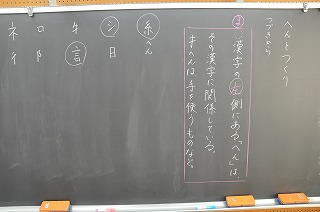 へんとつくり
つづきから
ま
漢字の左側にある「へん」は、
その漢字に関係している。
すへんは手を使うものなど。
糸へん
シ日
牛言
口阝
ネ彳